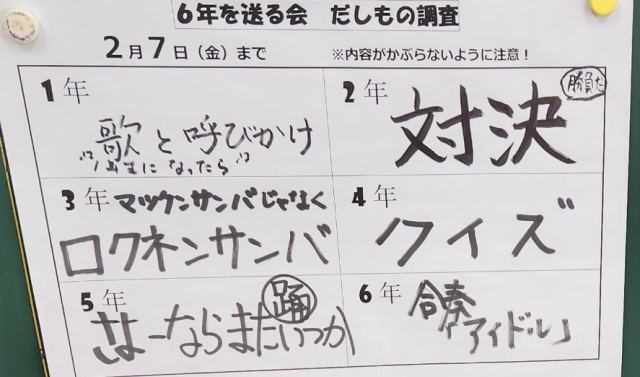 6年を送る会 だしもの調査
2月7日(金)まで ※内容がかぶらないように注意!
1年
歌と呼びかけ
"1年生になったら"
2年 勝負だ
対決
3年 マツケンサンバじゃなく
ロクネンサンバ
4年
クイズ
5年 踊
さよーならまたいつか
6年 合奏
「アイドル」